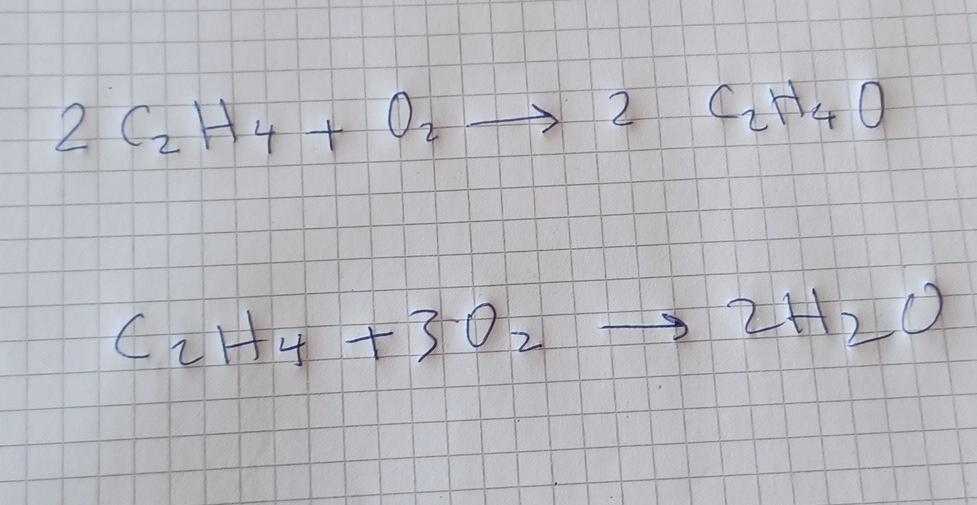 2 C₂H₄ + O₂ → 2 C₂H₄O
C₂H₄ + 3O₂ → 2H₂O